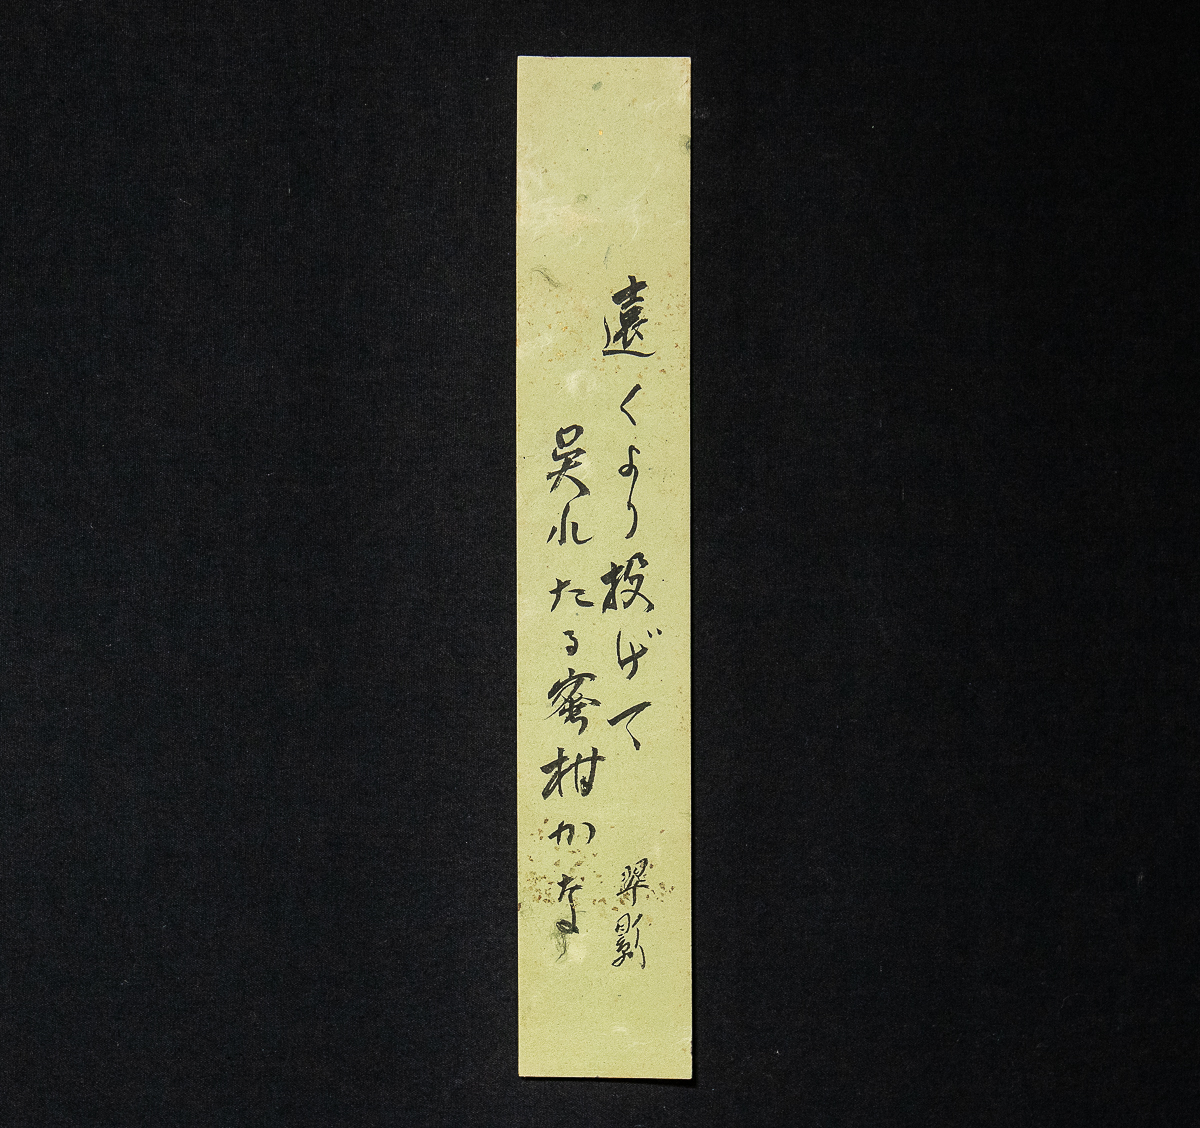 遠くより投げて
呉れたる蜜柑かな
翠影